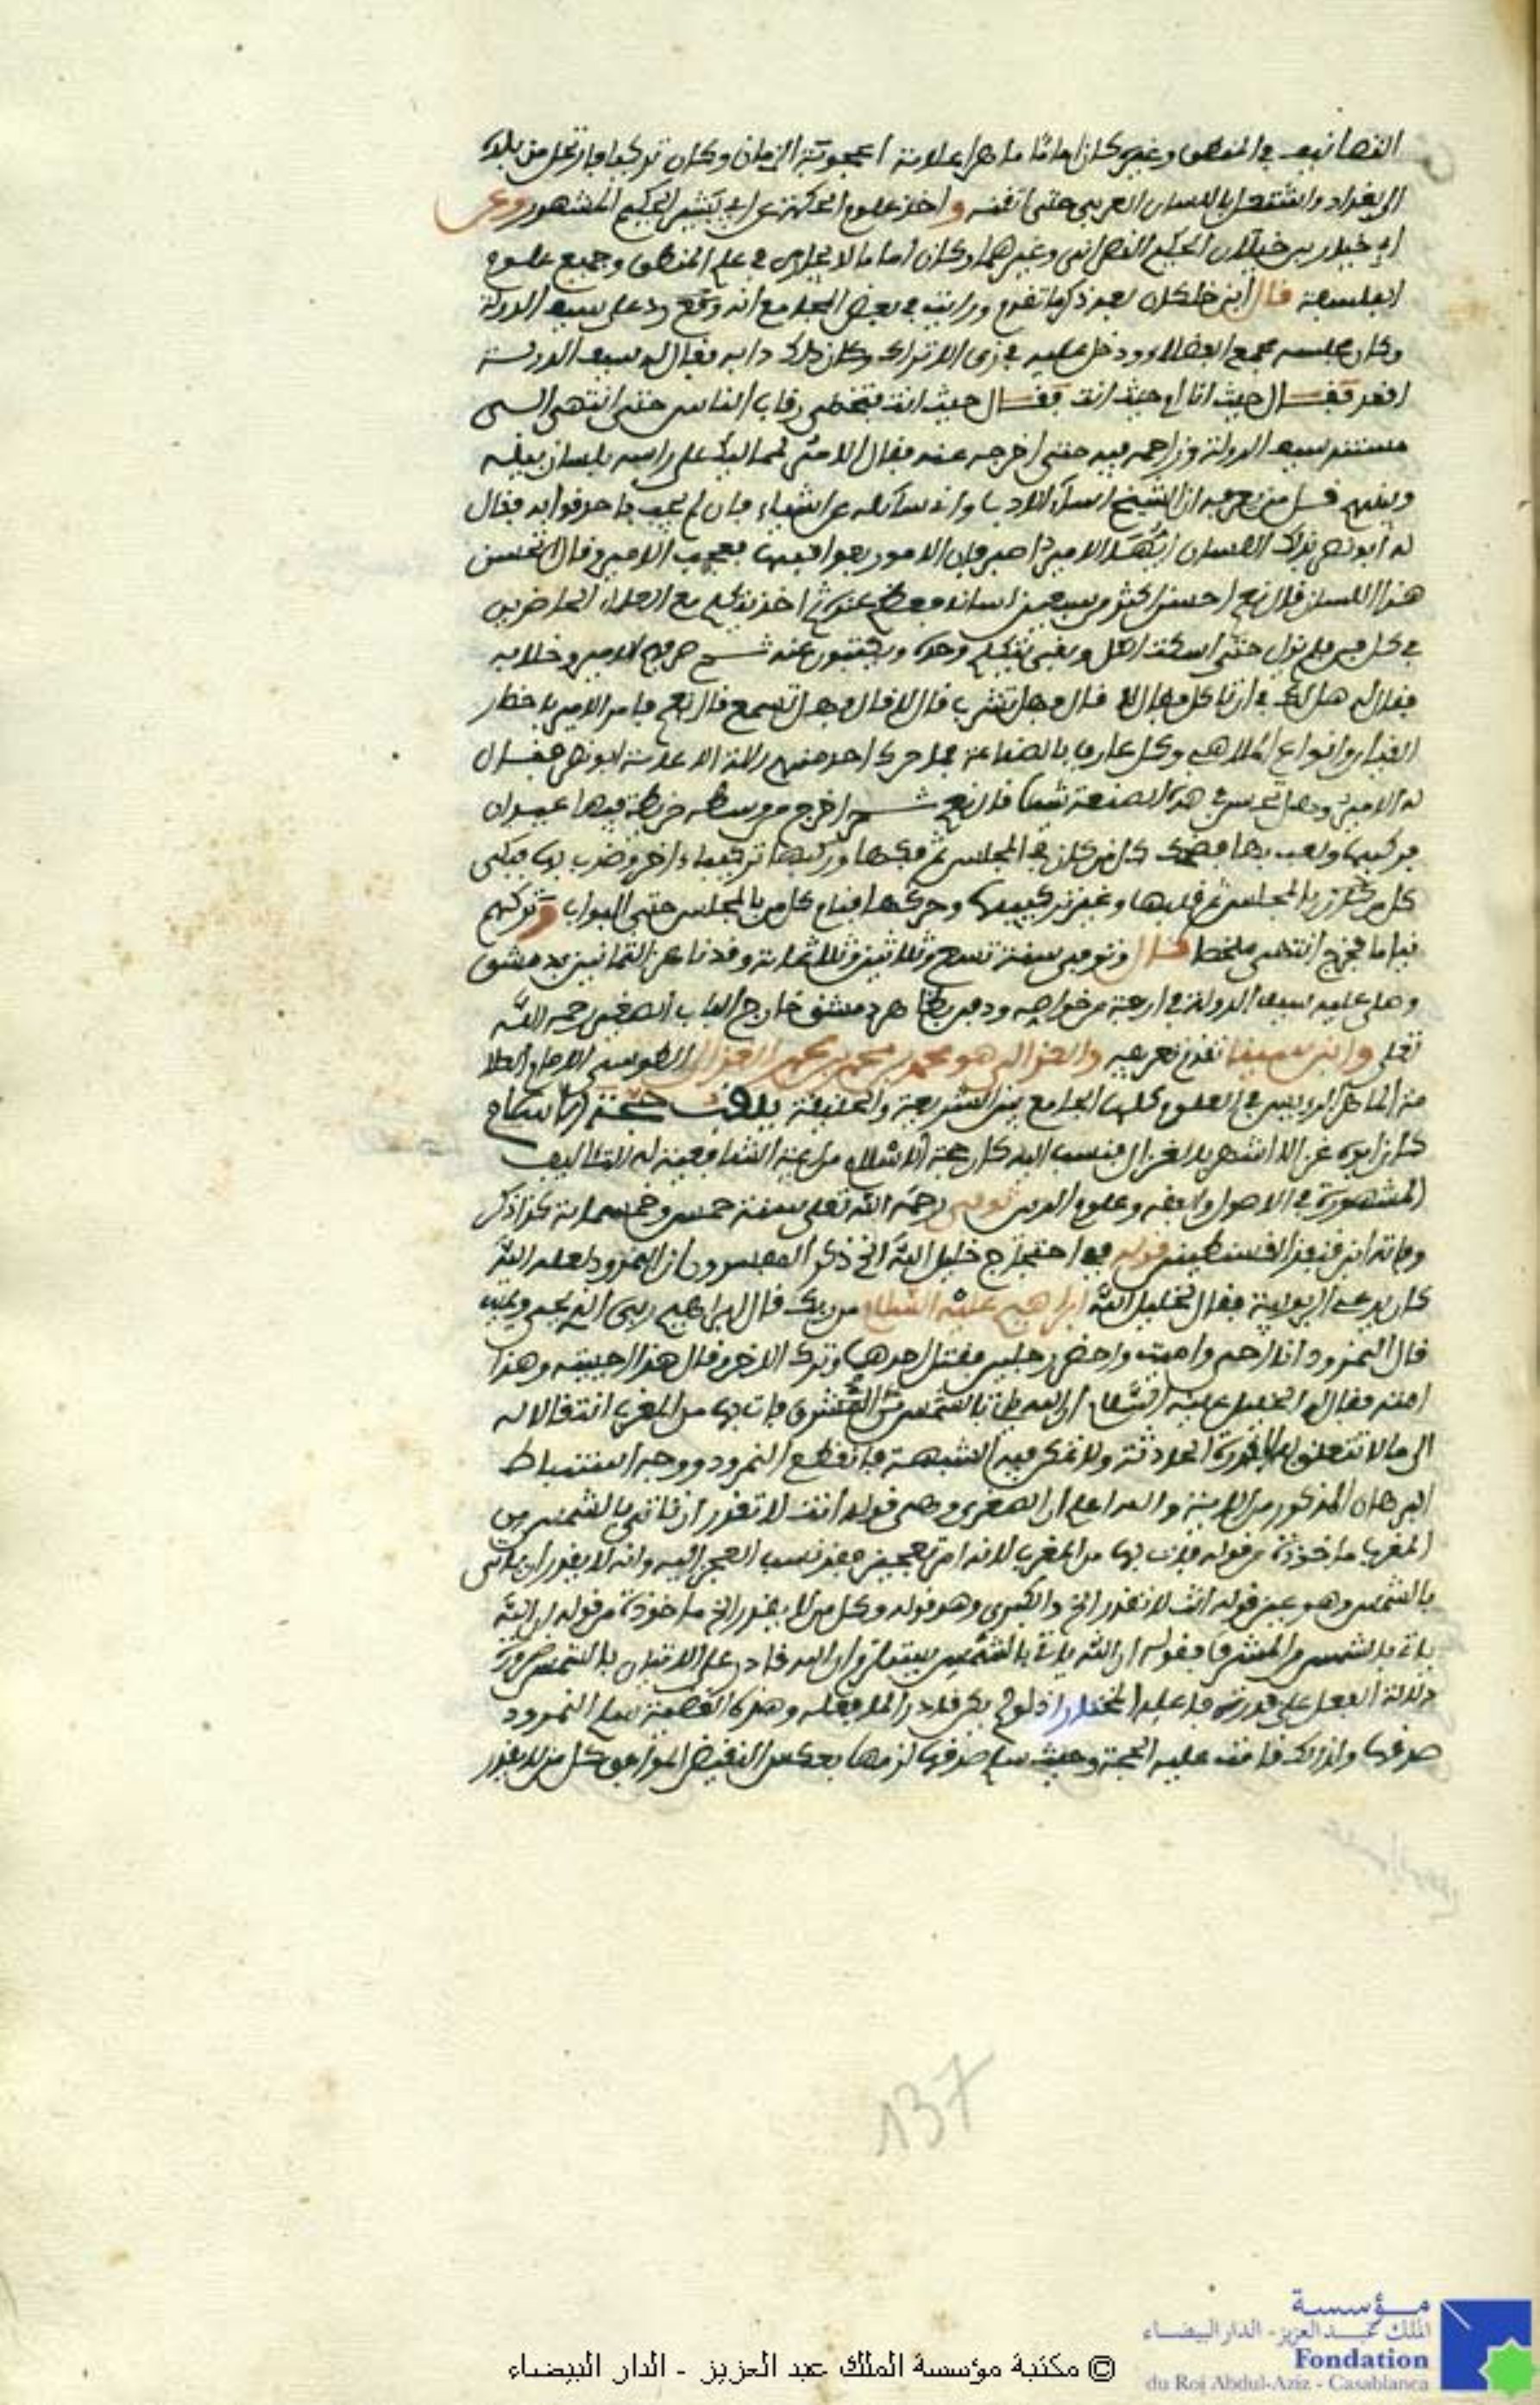 التصانيف في المنطق وغيره كان اماما ماهرا علامة اعجوبة الزمان وكان تركيا فارتحل من بلده
الى بغداد واشتغل باللسان العربي حتى اتقنه واخذ علوم الحكمة عن ابي بشر الحكيم المشهور وعن
ابي خيلان بن خيلان الحكيم النصراني وغيرهما وكان اماما لا يجارى في علم المنطق وجميع علوم
الفلسفة قال ابن خلكان بعد ذكر ما تقدم ورايت في بعض المجامع انه وقع ورد على سيف الدولة
وكان مجلسه مجمع الفضلاء ودخل عليه في زي الاتراك وكان ذلك دابه فقال له سيف الدولة
اقعد فقال حيث انا ام حيث انت فقال حيث انت فتخطى رقاب الناس حتى انتهى الى
مسند سيف الدولة وزاحمه فيه حتى اخرجه عنه فقال الامير لمماليك على راسه بلسان
قل من يعرفه ان الشيخ اساء الادب واني سائله عن اشياء فان لم يجب فاخرقوا به فقال
له ابو نصر بذلك اللسان ايها الامير اصبر فان الامور بعواقبها فعجب الامير وقال اتحسن
هذا اللسان قال نعم احسن اكثر من سبعين لسانا فعظم عنده ثم اخذ يتكلم مع العلماء الحاضرين
في كل فن فلم يزل حتى اسكت الكل وبقي يتكلم وحده ويكتبون عنه ثم صرفهم الامير وخلا به
فقال له هل لك في ان تاكل فقال لا قال وهل تشرب قال لا قال وهل تسمع قال نعم فامر الامير باحضار
القيان وانواع الملاهي وكل عارف بالصناعة فما حرك احد منهم الة الا عابه ابو نصر فقال
له الامير وهل تحسن في هذه الصنعة شيئا قال نعم ثم اخرج من وسطه خريطة فيها عيدان
فركبها ولعب بها فضحك كل من كان في المجلس ثم فكها وركبها تركيبا اخر وضرب بها فبكى
كل من كان بالمجلس ثم قلبها وغير تركيبها وحركها فنام كل من بالمجلس حتى البواب وتركهم
نياما فخرج انتهى ملخصا قال وتوفي سنة تسع وثلاثين وثلاثمائة وقد ناهز الثمانين بدمشق
وصلى عليه سيف الدولة في اربعة من خواصه ودفن بظاهر دمشق خارج الباب الصغير رحمه الله
تعلى وابن سينا تقدم تعريفه والغزالي هو محمد بن محمد بن محمد الغزالي الطوسي الامام
في العلوم كلها الجامع بين الشريعة والحقيقة يلقب حجة الاسلام
كان ابوه غزالا اشتهر بالغزال فنسب اليه كان حجة الاسلام من ايمة الشافعية له التئاليف
المشهورة في الاصول والفقه وعلوم الدين توفي رحمه الله تعلى سنة خمس وخمسمائة كذا ذكر
وفاته ابن قنفذ القسنطيني قوله في احتجاج خليل الله الخ ذكر المفسرون ان النمرود لعنه الله
كان يدعي الربوبية فقال لخليل الله ابراهيم عليه السلام من ربك قال ابراهيم ربي الذي يحيي ويميت
قال النمرود انا احيي واميت واحضر رجلين فقتل احدهما وترك الاخر وقال هذا احييته وهذا
امته فقال له الخليل عليه السلام ان الله ياتي بالشمس من المشرق فات بها من المغرب انتقالا له
الى ما لا تتعلق به القدرة الحادثة ولا تمكن فيه الشبهة فانقطع النمرود ووجه استنباط
البرهان المذكور من الاية والله اعلم ان الصغرى وهي قوله انت لا تقدر ان تاتي بالشمس من
المغرب ماخوذة من قوله فات بها من المغرب لانه امر تعجيز فقد نسب العجز اليه وانه لا يقدر ان ياتي
بالشمس وهو عين قوله انت لا تقدر الخ والكبرى وهو قوله وكل من لا يقدر الخ ماخوذة من قوله ان الله
ياتي بالشمس من المشرق فقوله ان الله ياتي بالشمس يستلزم ان الله قادر على الاتيان بالشمس ضرورة
دلالة الفعل على قدرة فاعله المختار اذ لو لم يكن قادرا لما فعله وهذه القضية سلم النمرود
صدقها ولذلك قامت عليه الحجة وحيث سلم صدقها لزمها بعكس النقيض الموافق كل من لا يقدر
137
مؤسسة
الملك عبد العزيز - الدار البيضاء
Fondation
du Roi Abdul-Aziz - Casablanca
© مكتبة مؤسسة الملك عبد العزيز - الدار البيضاء